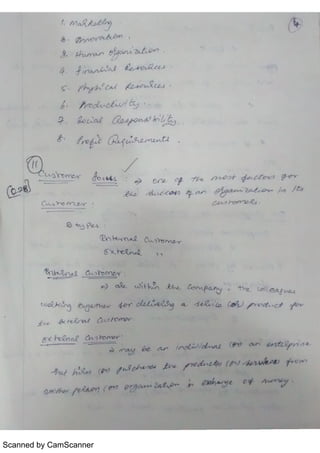 1. Marketing
2. Innovation.
3. Human organization.
4. financial Resources
5. physical Resources.
6. Productivity.
7. Social Responsibility.
8. Profit Requirements.
4
11
Customer => one of the most factors for
Q.28 the success of an organization is its
Customer: customers.
types:
Internal Customer
External "
Internal Customer
=> are within the company. The colleagues
working together for delivering a service (or) product for
the External Customer
External Customer
=> may be an individual (or) an enterprise
that hires (or) purchases the products (or) services from
another person (or) organization in exchange of money.
Scanned by CamScanner